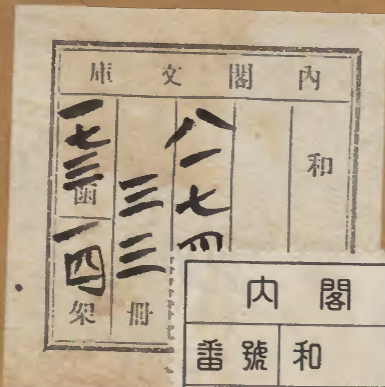 內閣文庫
和
八一七四
三三冊
一七三函一四架
内閣
番號 和